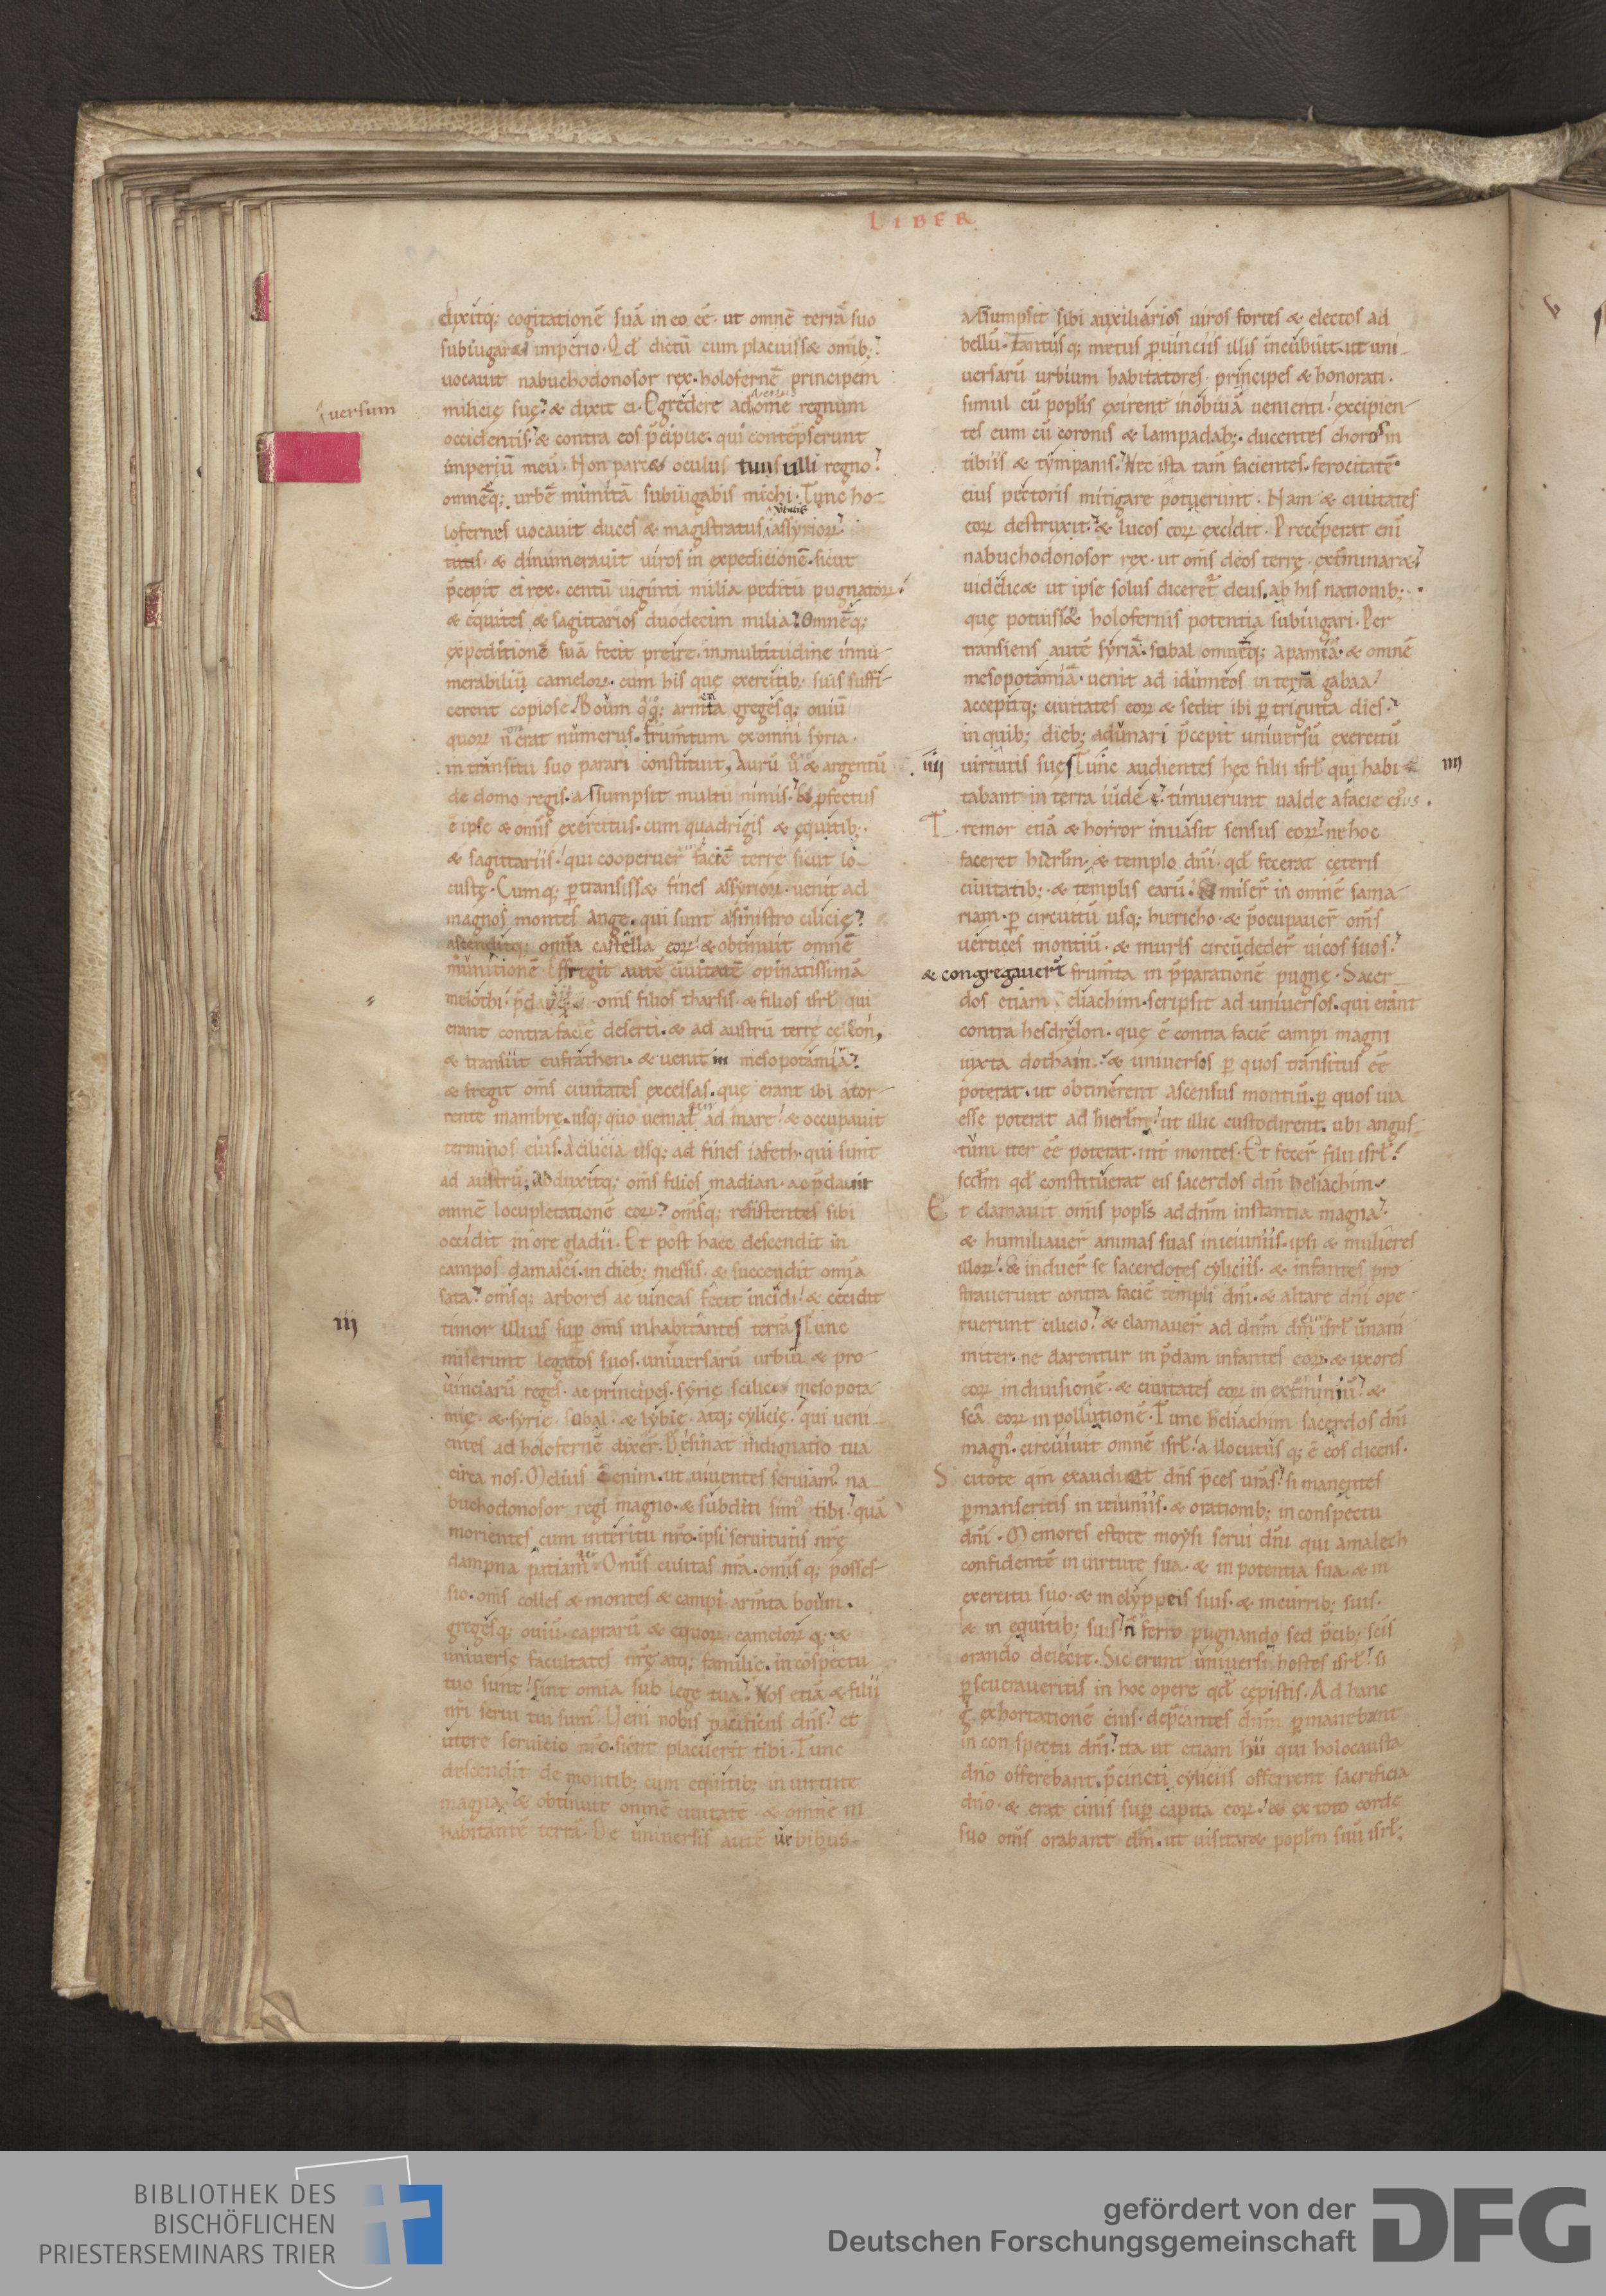 LIBER
dixitq; cogitationē suā in eo eē· ut omnē terrā suo
subiugaret imperio· Qđ dictū cum placuisset omib;
uocauit nabuchodonosor rex· holofernē principem
milicię suę· & dixit ei· Egredere ad omē regnum
uersum
occidentis· & contra eos p̄cipue· qui contēpserunt
imperiū meū· Non parcet oculus tuus ulli regno·
omnēq; urbē munitā subiugabis michi· Tunc ho-
lofernes uocauit duces & magistratus assyrior̄
& dinumerauit uiros in expedicionē· sicut
p̄cepit ei rex· centū uiginti milia peditū pugnator̄
& equites & sagittarios duodecim milia· Omnēq;
expeditionē suā fecit preire· in multitudine innu-
merabiliū camelor̄· cum his quę exercitib; suis suffi-
cerent copiose· Boum q̊q; armta gregesq; ouiū
quor̄ n̄ erat numerus· frum̄tum ex omni syria·
in transitu suo parari constituit· Aurū ū & argentū
de domo regis· assumpsit multū nimis· Et p̄fectus
ē ipse & om̄s exercitus· cum quadrigis & equitib;·
& sagittariis· qui cooperuer̄ faciē terrę sicut lo-
custę· Cumq; p̄transisset fines assyrior̄· uenit ad
magnos montes ange· qui sunt asinistro cilicię·
ascenditq; om̄ia castella eor̄· & obtinuit omnē
munitionē Effregit autē ciuitatē opinatissimā
melothi· p̄da om̄s filios tharsis· & filios isrl̄ qui
erant contra faciē deserti· & ad austrū terrę cellon·
& transiit eufrathen· & uenit in mesopotamiā·
& fregit om̄s ciuitates excelsas· quę erant ibi ator-
rente mambrę· usq; quo ueniat̄ ad mare· & occupauit
terminos eius· a cilicia usq; ad fines iafeth· qui sunt
ad austrū· Abduxitq; om̄s filios madian· ac p̄dauit
omnē locupletationē eor̄· om̄sq; resistentes sibi
occidit in ore gladii· Et post haec descendit in
campos damasci· in dieb; messis· & succendit om̄ia
sata· om̄sq; arbores ac uineas fecit incidi· & cecidit
iij
timor illius sup̄ om̄s inhabitantes terrā Tunc
miserunt legatos suos· uniuersarū urbiū & pro-
uinciarū reges· ac principes· syrię scilicet mesopota-
mię· & syrię· sobal· & lybię· atq; cylicię· qui ueni-
entes ad holofernē dixer̄· Desinat indignatio tua
circa nos· Melius ē enim· ut uiuentes seruiam⁹ na-
buchodonosor regi magno· & subditi sim⁹ tibi· quā
morientes cum interitu nr̄o· ipsi seruitutis nr̄ę
dampna patiam̄· Om̄is ciuitas nr̄a· om̄isq; posses-
sio· om̄s colles & montes & campi· armta boum·
gregesq; ouiū· caprarū & equor̄· camelor̄ q; &
uniuersę facultates nr̄ę atq; familię· in cōspectu
tuo sunt· sint om̄ia sub lege tua· Nos etiā & filii
nr̄i serui tui sum⁹· Ueni nobis pacificus dn̄s· et
utere seruicio nr̄o· sicut placuerit tibi· Tunc
descendit de montib; cum equitib; in uirtute
magna· & obtinuit omnē ciuitatē· & omnē in
habitantē terrā· De uniuersis autē urbibus·
assumpsit sibi auxiliarios uiros fortes & electos ad
bellū· Tantusq; metus prouinciis illis incubuit· ut uni-
uersarū urbium habitatores· principes & honorati·
simul cū popl̄is exirent in obuiā uenienti· excipien-
tes eum cū coronis & lampadab;· ducentes choros in
tibiis & tympanis· Nec ista tam̄ facientes· ferocitatē
eius pectoris mitigare potuerunt· Nam & ciuitates
eor̄ destruxit· & lucos eor̄ excidit· Preceperat eni
nabuchodonosor rex· ut om̄s deos terrę· extminaret·
uidelicet ut ipse solus diceret̄ deus· ab his nationib;·
quę potuisset holofernis potentia subiugari· Per
transiens autē syriā· sobal omnēq; apamiā· & omnē
mesopotamiā· uenit ad idumeos in terra gabaa·
accepitq; ciuitates eor̄ & sedit ibi p̄ triginta dies·
in quib; dieb; adunari p̄cepit uniuersū exercitū
iiij uirtutis suę Tunc audientes hęc filii isrl̄ qui habi- iiij
tabant in terra iudę· timuerunt ualde a facie eius·
Tremor etiā & horror inuasit sensus eor̄· ne hoc
faceret hierl̄m· & templo dn̄i· qđ fecerat cęteris
ciuitatib;· & templis earū· Et miser̄ in omnē sama-
riam· p̄ circuitū usq; hiericho· & p̄occupauer̄ om̄s
uertices montiū· & muris circūdeder̄ uicos suos·
& congregauer̄t frum̄ta in p̄parationē pugnę· Sacer-
dos etiam eliachim· scripsit ad uniuersos· qui erant
contra hesdrelon· quę ē contra faciē campi magni
iuxta dothaim· & uniuersos p̄ quos transitus eē
poterat· ut obtinerent ascensus montiū· p̄ quos uia
esse poterat ad hierl̄m· ut illic custodirent· ubi angus-
tum iter eē poterat· int̄ montes· Et fecer̄ filii isrl̄·
scd̄m qđ constituerat eis sacerdos dn̄i heliachim·
Et clamauit om̄is popl̄s ad dn̄m instantia magna·
& humiliauer̄ animas suas in ieiuniis· ipsi & mulieres
illor̄· & induer̄ se sacerdotes cyliciis· & infantes pro
strauerunt contra faciē templi dn̄i· & altare dn̄i ope-
ruerunt cilicio· & clamauer̄ ad dn̄m dm̄ isrl̄ unani
miter· ne darentur in p̄dam infantes eor̄· & uxores
eor̄ in diuisionē· & ciuitates eor̄ in extminiū· &
sc̄a eor̄ in pollutionē· Tunc heliachim sacerdos dn̄i
magn⁹· circuiuit omnē isrl̄· allocutusq; ē eos dicens·
Scitote qm̄ exaudiet dn̄s p̄ces ur̄as· si manentes
p̄manseritis in ieiuniis· & orationib; in conspectu
dn̄i· Memores estote moysi serui dn̄i qui amalech
confidentē in uirtute sua· & in potentia sua· & in
exercitu suo· & in clyppeis suis· & in currib; suis·
& in equitib; suis· n̄ ferro pugnando sed p̄cib; scīs
orando deiecit· Sic erunt uniuersi hostes isrl̄· si
p̄seueraueritis in hoc opere qđ cępistis· Ad hanc
g̊ exhortationē eius· dep̄cantes dn̄m p̄manebant
in conspectu dn̄i· ita ut etiam hii qui holocausta
dn̄o offerebant· p̄cincti cyliciis offerrent sacrificia
dn̄o· & erat cinis sup̄ capita eor̄· & ex toto corde
suo om̄s orabant dm̄· ut uisitaret popl̄m suū isrl̄;
BIBLIOTHEK DES
BISCHÖFLICHEN
PRIESTERSEMINARS TRIER
gefördert von der
Deutschen Forschungsgemeinschaft
DFG